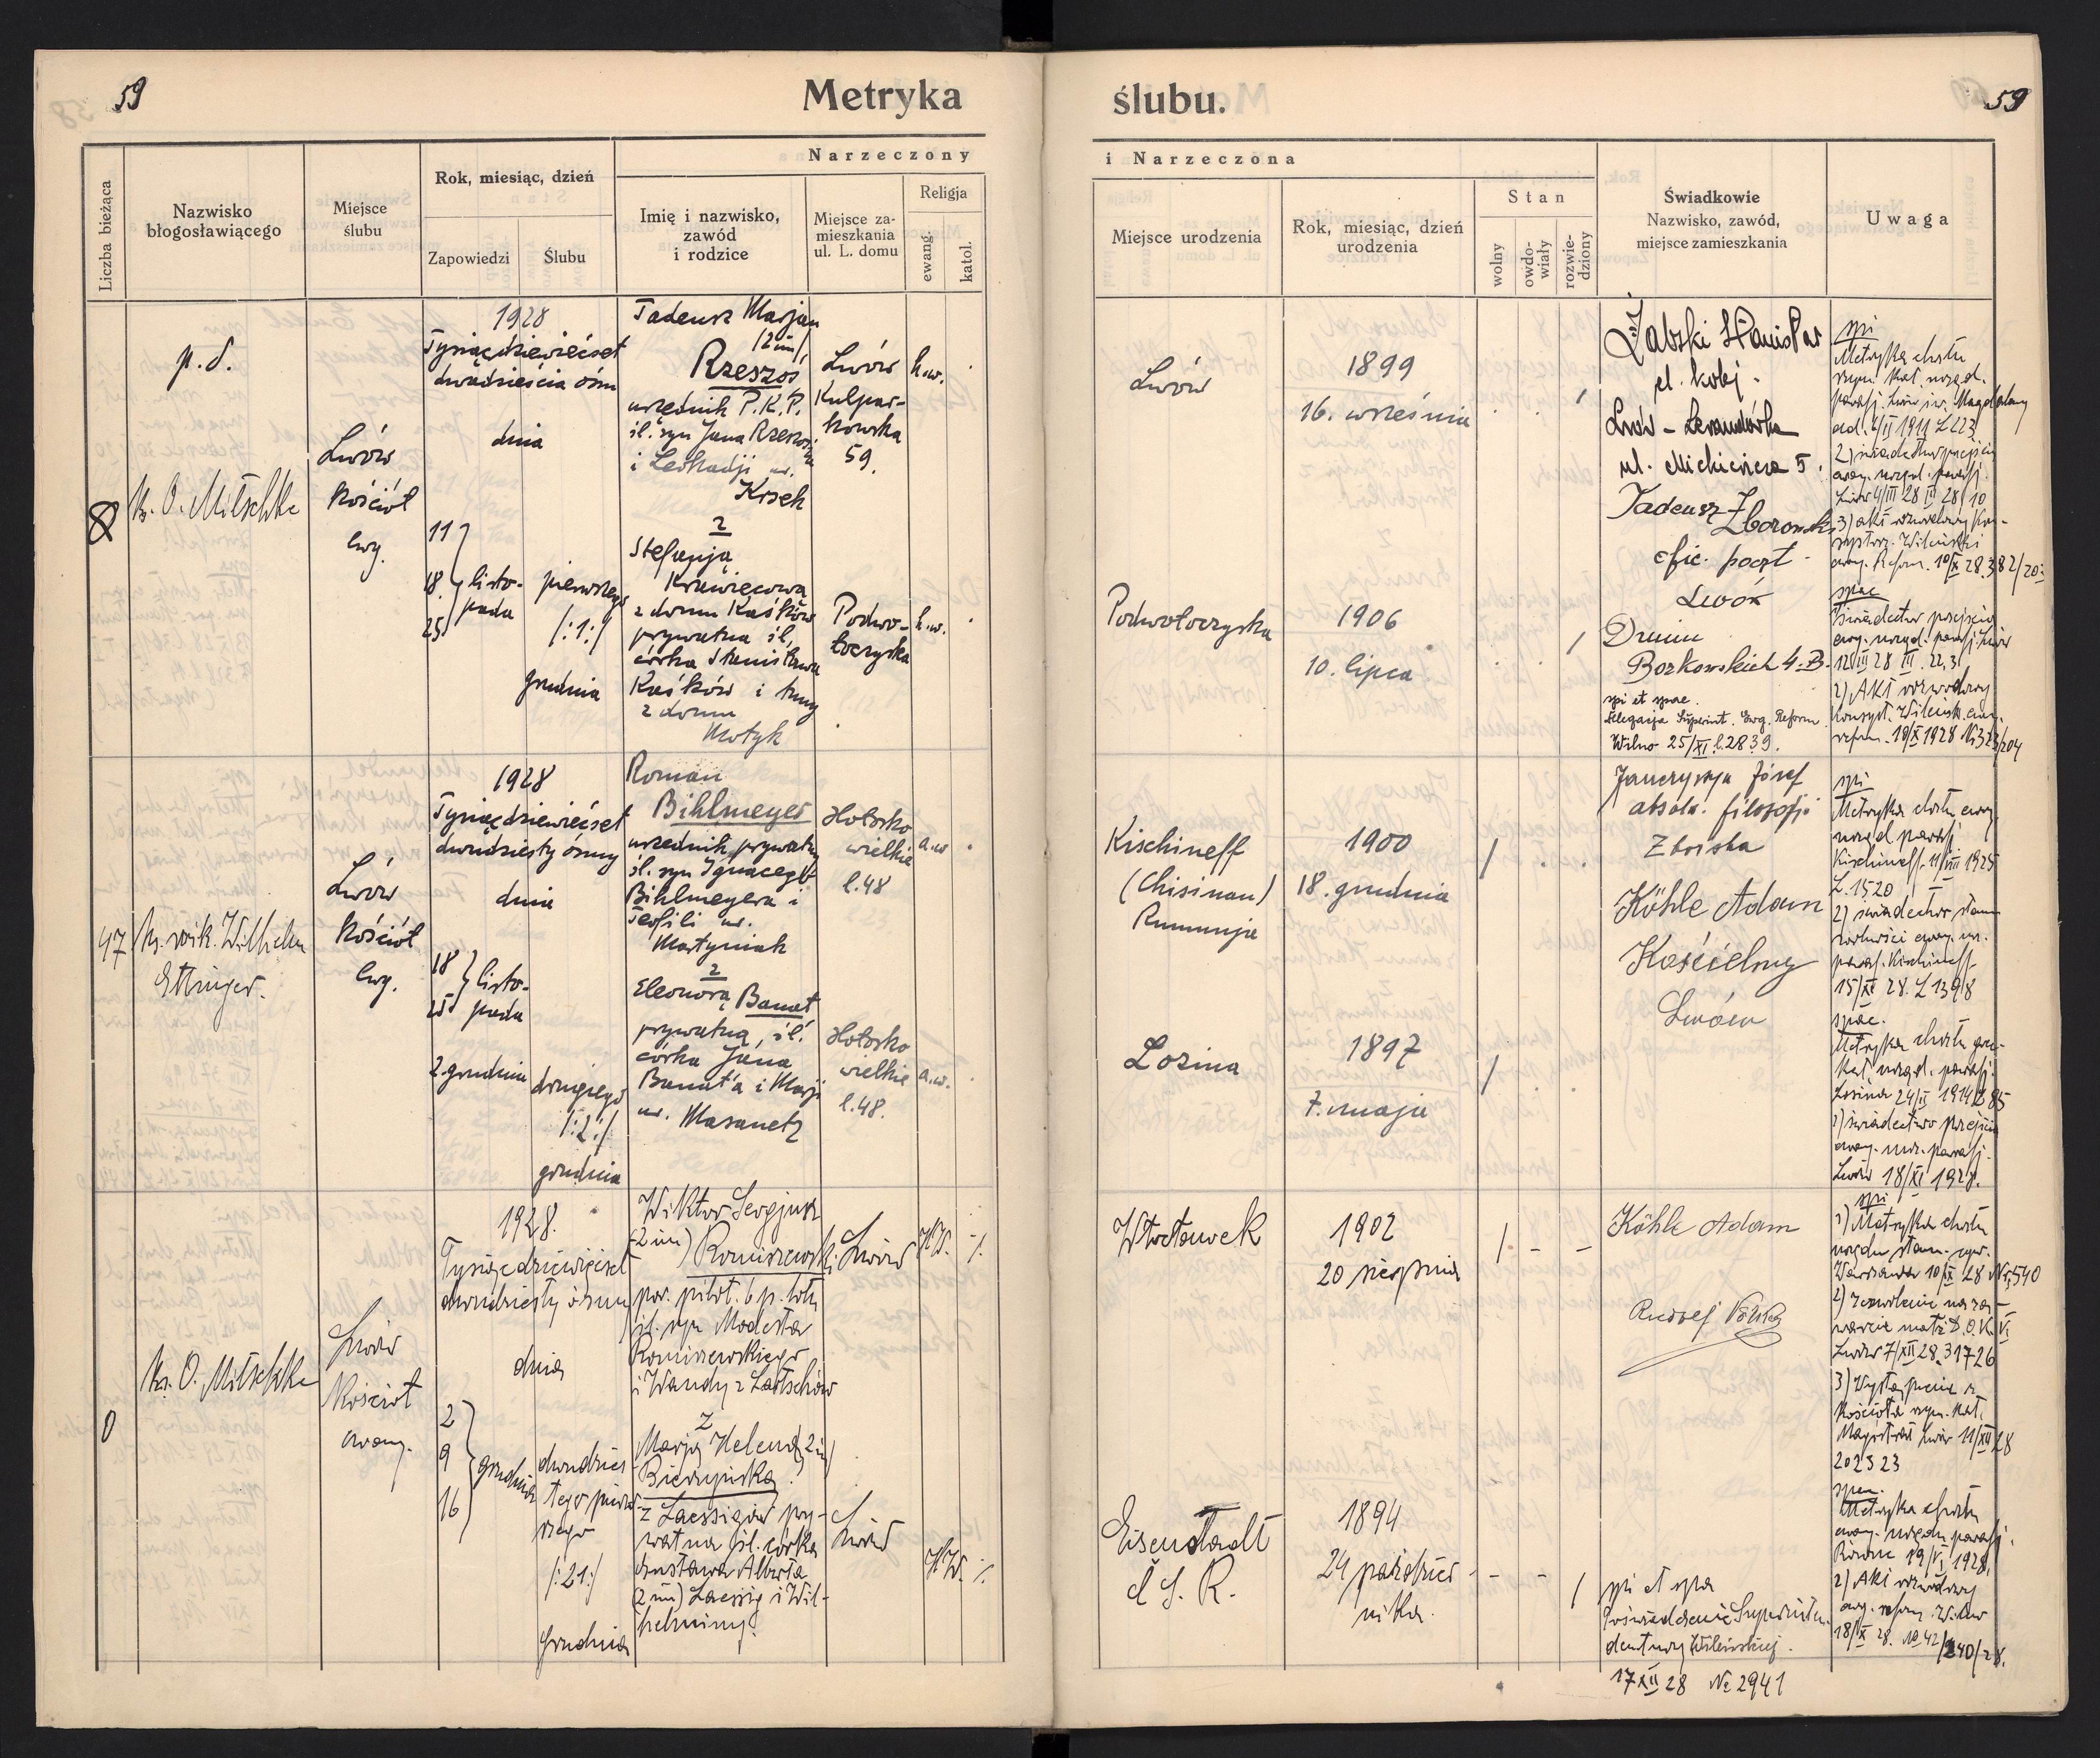 59
Metryka
ślubu.
59
Liczba bieżąca
Nazwisko
błogosławiącego
Miejsce
ślubu
Rok, miesiąc, dzień
Zapowiedzi
Ślubu
Narzeczony
Imię i nazwisko,
zawód
i rodzice
Miejsce za-
mieszkania
ul. L. domu
Religja
ewang.
katol.
i Narzeczona
Miejsce urodzenia
Rok, miesiąc, dzień
urodzenia
Stan
wolny
owdo-
wiały
rozwie-
dziony
Świadkowie
Nazwisko, zawód,
miejsce zamieszkania
Uwaga
p. d.
ks. O. Mitschke
Lwów
Kościół
ewg.
1928
Tysiącdziewięćset
dwadzieścia ósm
dnia
11
18
25
listo-
pada
pierwszego
/:1:/
grudnia
Tadeusz Marjan
/2 im/
Rzeszoś
urzędnik P.K.P.
śl. syn Jana
i Leokadji ur.
Krsek
z
Stefanją
Krawiecową
z domu Kaśków
prywatna śl.
córka Stanisława
Kaśków i
z domu
Motyk
Lwów
Kulpar-
kowska
59.
h.w.
Podwo-
łoczyska
h.w.
Lwów
1899
16. września
Podwołoczyska
1906
10. lipca
Żabski Stanisław
el. kolej.
Lwów - Lewandówka
ul. Mickiewicza 5.
Tadeusz Zborowski
ofic. poczt.
Lwów
Dunin
Borkowskich 4.B.
spi et spae.
Delegacja Superint. Ewg. Reform
Wilno 25/XI l. 2839.
spi
Metryka chrztu
rzym. kat. urzęd.
paraf. Lwów św. Magdaleny
1911 L 223
ewg. urzęd. paraf.
Lwów 4/III 28
3) akt rozwodowy Kon-
ewg. Reform. 10/X 28. 382/20
spae
ewg. urzęd. paraf. Lwów
12/III 28 III. 22,3
2) Akt rozwodowy
Konsyst. Wileńsk. ewg.
reform. 10/X 1928 № 323/204
47
ks. wik. Wilhelm
Ettinger.
Lwów
Kościół
ewg.
1928
Tysiącdziewięćset
dwudziesty ósmy
dnia
18
25
listo-
pada
2. grudnia
drugiego
/:2:/
grudnia
Roman
Bihlmeyer
urzędnik prywatny
śl. syn Ignacego
Bihlmeyera i
Teofili ur.
Martyniak
z
Eleonorą Banat
prywatną, śl.
córka Jana
Banat'a i Marji
ur. Masanetz
Hołosko
wielkie
l. 48
a.w.
Hołosko
wielkie
l. 48.
a.w.
Kischineff
(Chisinau)
Rumunja
1900
18. grudnia
Lozina
1897
7. maja
Józef
absol. filozofji
Zboiska
Köhle Adam
Kościelny
Lwów
spi
Metryka chrztu ewg.
urzęd paraf.
Kischineff. 11/VIII 1925
L. 1520
2) świadectwo stanu
wolności ewg. ur.
paraf. Kischineff
15/XI 28. L 1398
spae.
Metryka chrztu grec-
kat. urzęd. paraf.
Lozina 24/II 1914 L 85
2) świadectwo przejścia
ewg. urz. paraf.
Lwów 18/XI 1928.
ks. O. Mitschke
Lwów
Kościół
ewang.
1928.
Tysiącdziewięćset
dwudziesty ósmy
dnia
2
9
16
grudnia
dwudzies
tego pierw-
szego
/:21:/
Grudnia
Wiktor Sergjusz
(2 im)
Romiszewski
por. pilot. 6 p. lotn
śl. syn Modesta
Romiszewskiego
i Wandy z Lartschów
z
Marją Heleną (2 im)
Bierzyńską
z Laessigów pry-
watna śl. córka
Gustawa Alberta
(2 im) Laessig i Wil-
helminy.
Lwów
H.W.
Lwów
H.W.
Włocławek
1902
20 sierpnia
Eisenstadt
Č. S. R.
1894
24 paździer-
nika.
Köhle Adam
spi et spae
Poświadczenie Superinten-
dentury Wileńskiej.
17 XII 28 № 2941
spi
1) Metryka chrztu
urzędu stan. cyw.
Warszawa 10/IX 28 Nr. 540
2) zezwolenie na za-
warcie małż. D.O.K. VI
Lwów 7/XII 28. 31726
3) Wystąpienie z
Kościoła rzym. kat.
Magistrat Lwów 11/XII 28
202323
spae.
Metryka chrztu
ewg. urzędu paraf.
Równe 19/VI 1928.
2) Akt rozwodowy
ewg. reform. Wilno
18/X 28. № 42/240/28.